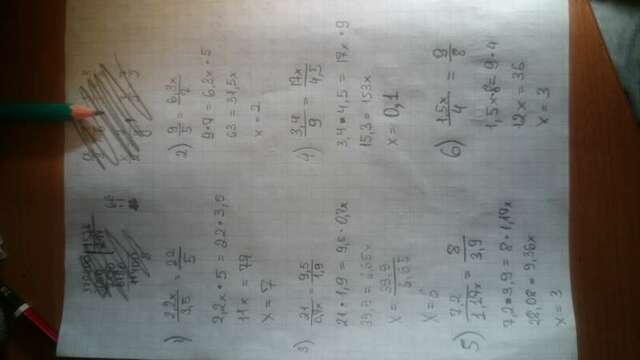 1) 2,2x/3,5 = 22/5
2,2x • 5 = 22 • 3,5
11x = 77
x = 7
2) 9/5 = 6,3x/7
9 • 7 = 6,3x • 5
63 = 31,5x
x = 2
3) 21/0,7x = 9,5/1,9
21 • 1,9 = 9,5 • 0,7x
39,9 = 6,65x
x = 39,9/6,65
x = 6
4) 3,4/9 = 17x/4,5
3,4 • 4,5 = 17x • 9
15,3 = 153x
x = 0,1
5) 7,2/1,17x = 8/3,9
7,2 • 3,9 = 8 • 1,17x
28,08 = 9,36x
x = 3
6) 1,5x/4 = 9/8
1,5x • 8 = 9 • 4
12x = 36
x = 3